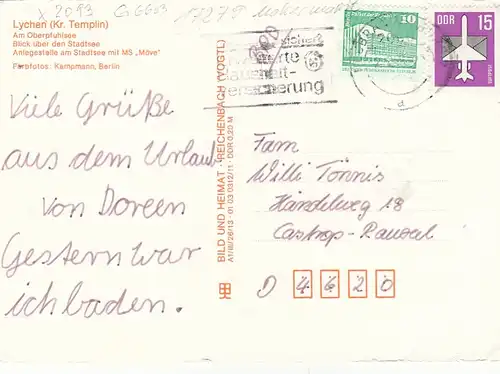 x 2093
Lychen (Kr. Templin)
Am Oberpfuhlsee
Blick über den Stadtsee
Anlegestelle am Stadtsee mit MS „Möve“
Farbfotos: Kampmann, Berlin
Viele Grüße
aus dem Urlaub
von Doreen
Gestern war
ich baden.
BILD UND HEIMAT · REICHENBACH (VOGTL)
A1/III/26/13 · 01 03 0312/11 · DDR 0,20 M
10
DDR 15
Fam
Willi Tönnis
Händelweg 18
Castrop-Rauxel
D 4620